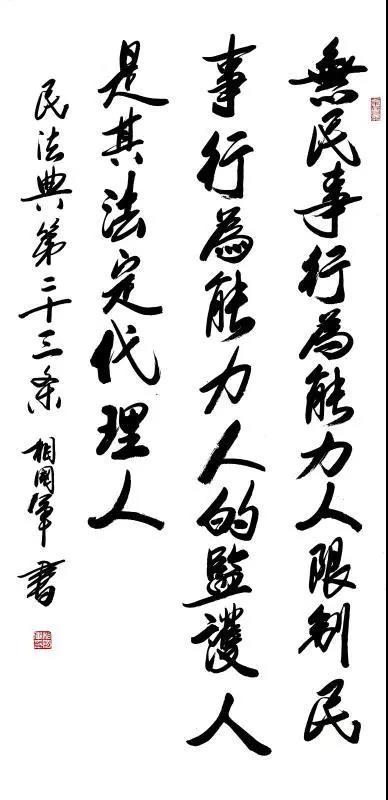 無民事行為能力人限制民
事行為能力人的監護人
是其法定代理人
民法典第二十三条 相國軍 書